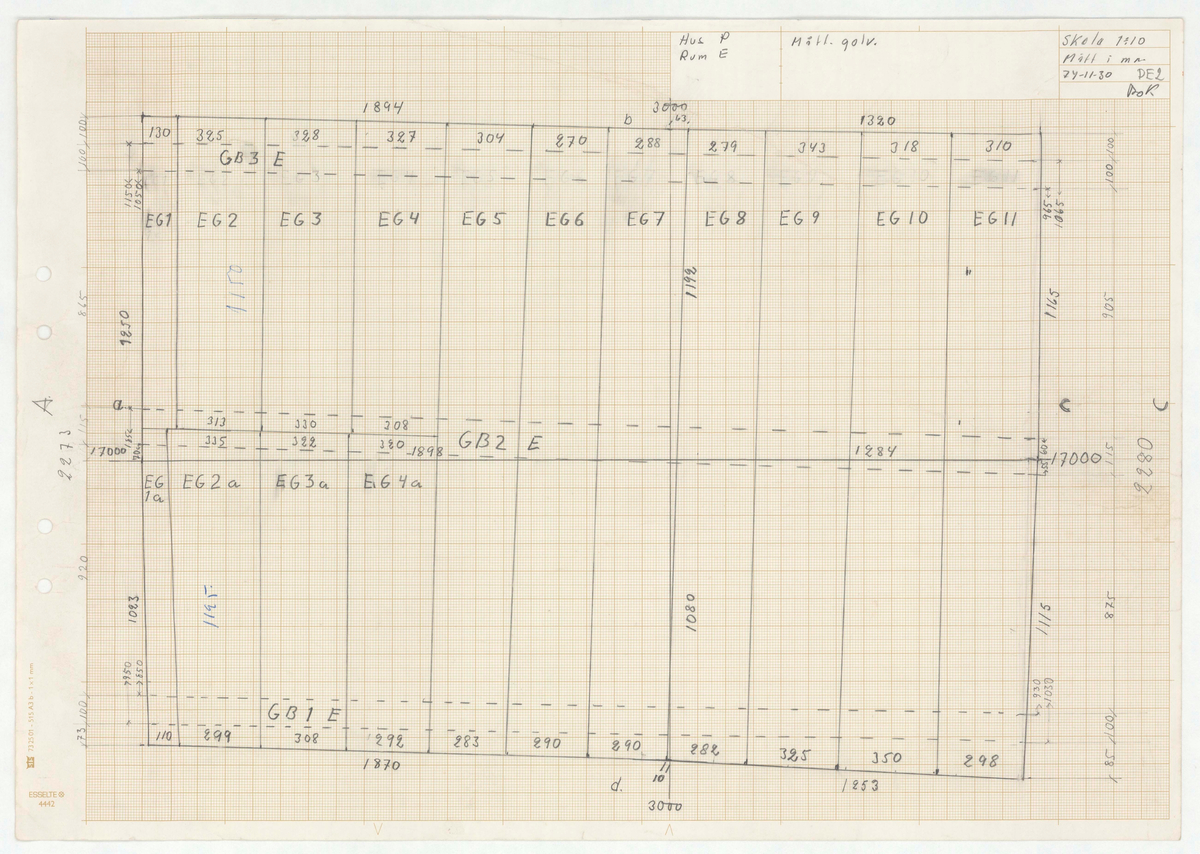 Hus P
Rum E
Mått. golv.
Skala 1:10
Mått i mm
74-11-30 DE2
BoR
1894
3000
b
63
1320
130 325 328 327 304 270 288 279 343 318 310
GB3 E
100 100
100 100
1150
1050
965
1065
EG1 EG2 EG3 EG4 EG5 EG6 EG7 EG8 EG9 EG10 EG11
1150
1192
865
1250
1165
905
A
a
c
C
313 330 308
335 322 320
1898
GB2 E
1284
115
17000
17000
55
60
115
2273
2280
EG
1a
EG2a EG3a EG4a
920
1023
1195
1080
1115
875
950
850
930
1030
GB1 E
73 100
110 299 308 292 283 290 290 282 325 350 298
85 100
1870
10
d.
1253
3000
732501 - 515 A3 B - 1 x 1 mm
ESSELTE
4442